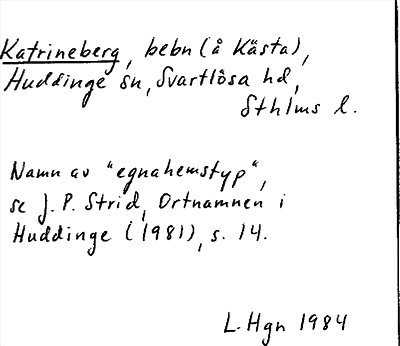 Katrineberg, bebn (å Kästa),
Huddinge sn, Svartlösa hd,
Sthlms l.
Namn av "egnahemstyp",
se J. P. Strid, Ortnamnen i
Huddinge (1981), s. 14.
L. Hgn 1984